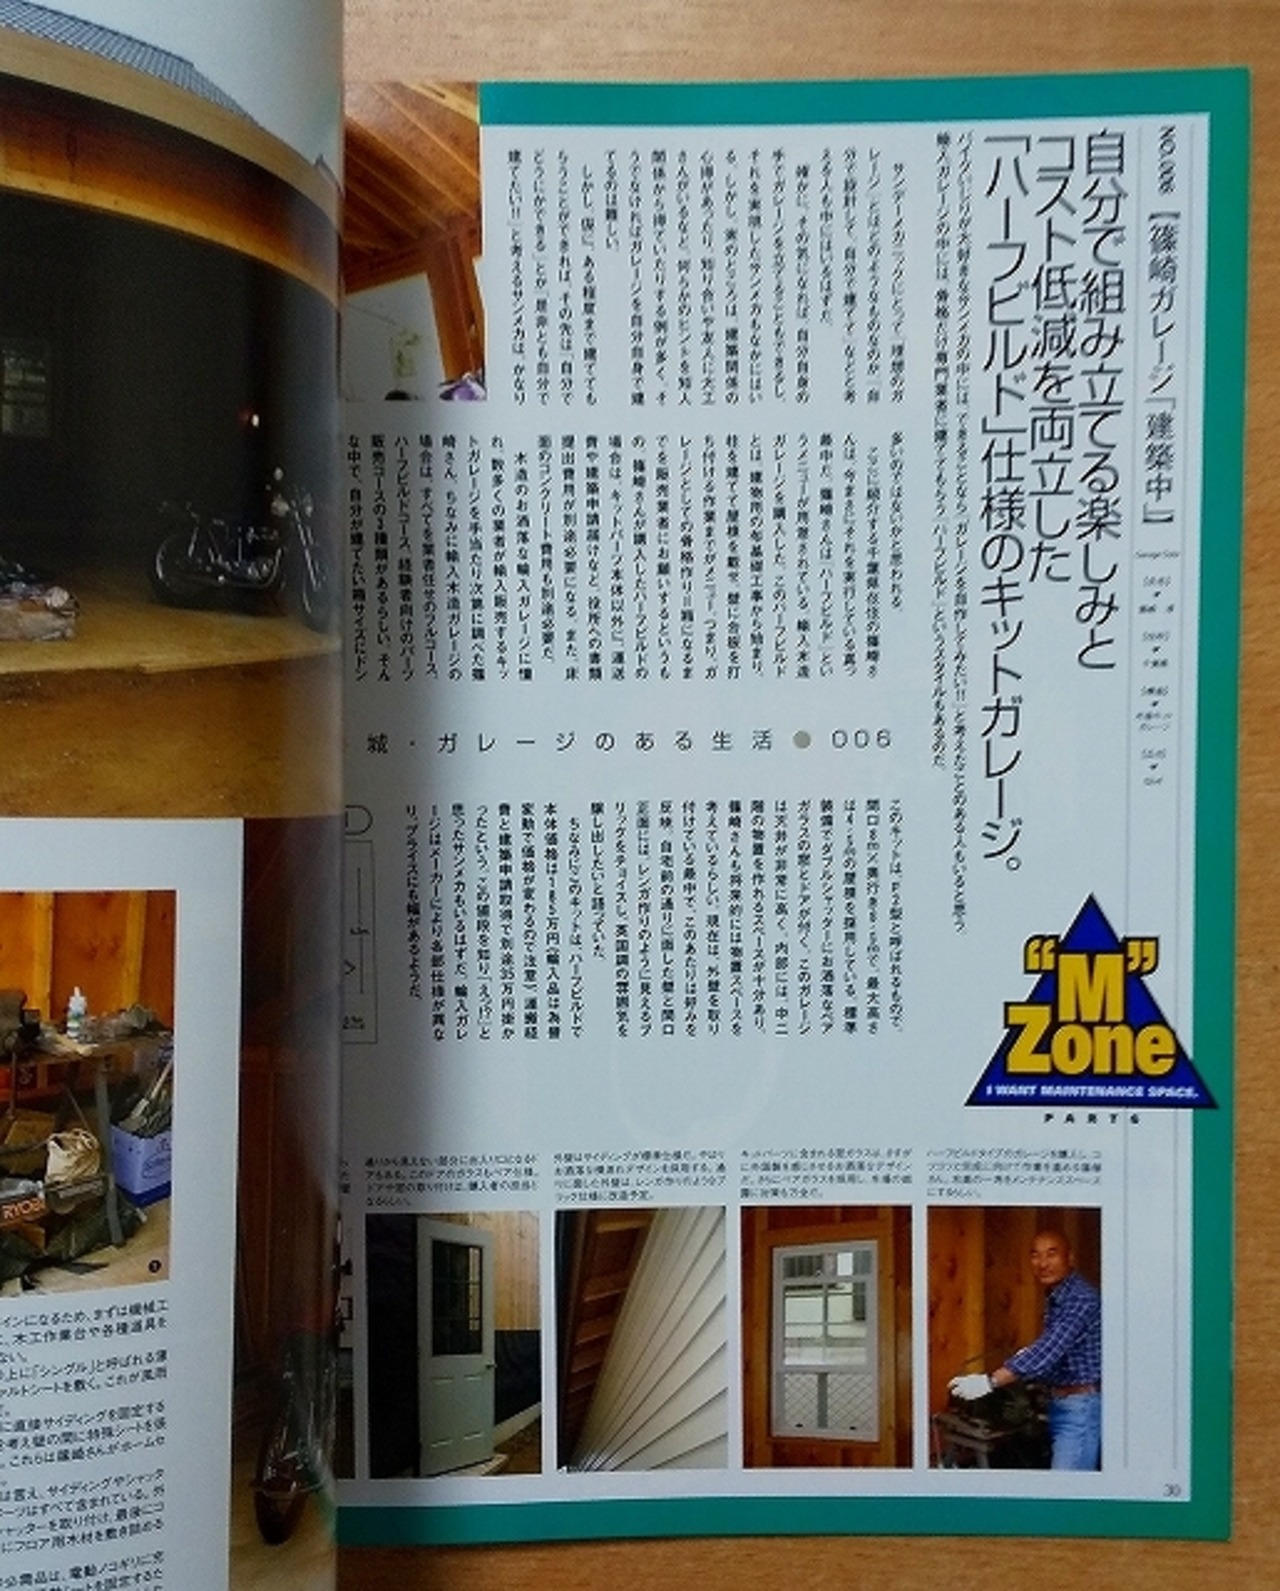 NO.006 【篠崎ガレージ「建築中」】
自分で組み立てる楽しみと
コスト低減を両立した
「ハーフビルド」仕様のキットガレージ。
バイクいじりが大好きなサンメカの中には、できることなら「ガレージを自作してみたい!!」と考えたことのある人もいると思う。
輸入ガレージの中には、骨格だけ専門業者に建ててもらう「ハーフビルド」というスタイルもあるのだ。
サンデーメカニックにとって「理想のガ
レージ」とはどのようなものなのか「自
分で設計して、自分で建てて」などと考
える人も中にはいるはずだ。
確かに、その気になれば、自分自身の
手でガレージを立てることもできるし、
それを実現したサンメカもなかにはい
る。しかし、実のところは、建築関係の
心得があったり、知り合いや友人に大工
さんがいるなど、何らかのヒントを知人
関係から得ていたりする例が多く、そ
うでなければガレージを自分自身で建
てるのは難しい。
しかし、仮に、ある程度まで建てても
らうことができれば、その先は「自分で
どうにかできる」とか、「是非とも自分で
建てたい!!」と考えるサンメカは、かなり
多いのではないかと思われる。
ここに紹介する千葉県在住の篠崎さ
んは、今まさにそれを実行している真っ
最中だ。篠崎さんは「ハーフビルド」とい
うメニューが用意されている、輸入木造
ガレージを購入した。このハーフビルド
とは、建物用の布基礎工事から始まり、
柱を建てて屋根を載せ、壁に合板を打
ち付ける作業までがメニュー。つまり、ガ
レージとしての骨格作り=箱になるま
でを販売業者にお願いするというも
の。篠崎さんが購入したハーフビルドの
場合は、キットパーツ本体以外に、運送
費や建築申請届けなど、役所への書類
提出費用が別途必要になる。また、床
面のコンクリート費用も別途必要だ。
木造のお洒落な輸入ガレージに憧
れ、数多くの業者が輸入販売するキッ
トガレージを手当たり次第に調べた篠
崎さん。ちなみに輸入木造ガレージの
場合は、すべてを業者任せのフルコース、
ハーフビルドコース、経験者向けのパーツ
販売コースの3種類があるらしい。そん
な中で、自分が建てたい箱サイズにドン
城・ガレージのある生活●006
このキットは、P2型と呼ばれるもので、
間口
装備でダブルシャッターにお洒落なペア
ガラスの窓とドアが付く。このガレージ
は天井が非常に高く、内部には、中二
階の物置を作れるスペースが十分あり、
篠崎さんも将来的には物置スペースを
考えているらしい。現在は、外壁を取り
付けている最中で、このあたりは好みを
反映。自宅前の通りに面した壁と間口
正面には、レンガ作りのように見えるブ
リックをチョイスし、英国調の雰囲気を
醸し出したいと語っていた。
ちなみにこのキットは、ハーフビルドで
本体価格は185万円(輸入品は為替
変動で価格が変わるので注意)、運搬経
費と建築申請取得で別途35万円掛か
ったという。この値段を知り「えっ!?」と
思ったサンメカもいるはずだ。輸入ガレ
ージはメーカーにより各部仕様が異な
り、プライスにも幅があるようだ。
“M”
Zone
I WANT MAINTENANCE SPACE.
PART6
通りから見えない部分に出入り口になるド
アもある。このドアのガラスもペア仕様。
ドアや窓の取り付けは、購入者の担当と
なるらしい。
外壁はサイディングが標準仕様だ。やはり
お洒落な横流れデザインを採用する。通
りに面した外壁は、レンガ作りのようなブ
リック仕様に改造予定。
キットパーツに含まれる窓ガラスは、さすが
に外国製を感じさせるお洒落なデザイン
だ。さらにペアガラスを採用し、冬場の結
露に対策も万全だ。
ハーフビルドタイプのガレージを購入し、コ
ツコツと完成に向けて作業を進める篠崎
さん。木裏の一角をメンテナンススペース
にするらしい。
39
RYOBI
インになるため、まずは機械工
、木工作業台や各種道具を
ない。
上に「シングル」と呼ばれる薄
ァルトシートを敷く。これが風雨
に直接サイディングを固定する
を考え壁の間に特殊シートを張
。これらは篠崎さんがホームセ
は言え、サイディングやシャッタ
ーツはすべて含まれている。外
ャッターを取り付け、最後にコ
にフロア用木材を敷き詰める
必需品は、電動ノコギリに充